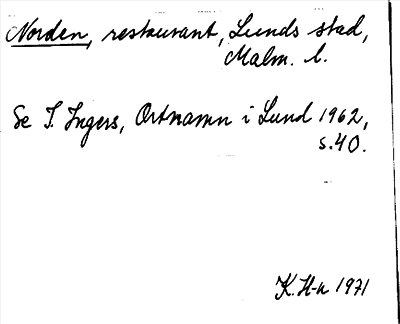 Norden, restaurant, Lunds stad,
Malm. l.
Se I. Ingers, Ortnamn i Lund 1962,
s. 40.
K. H-n 1971